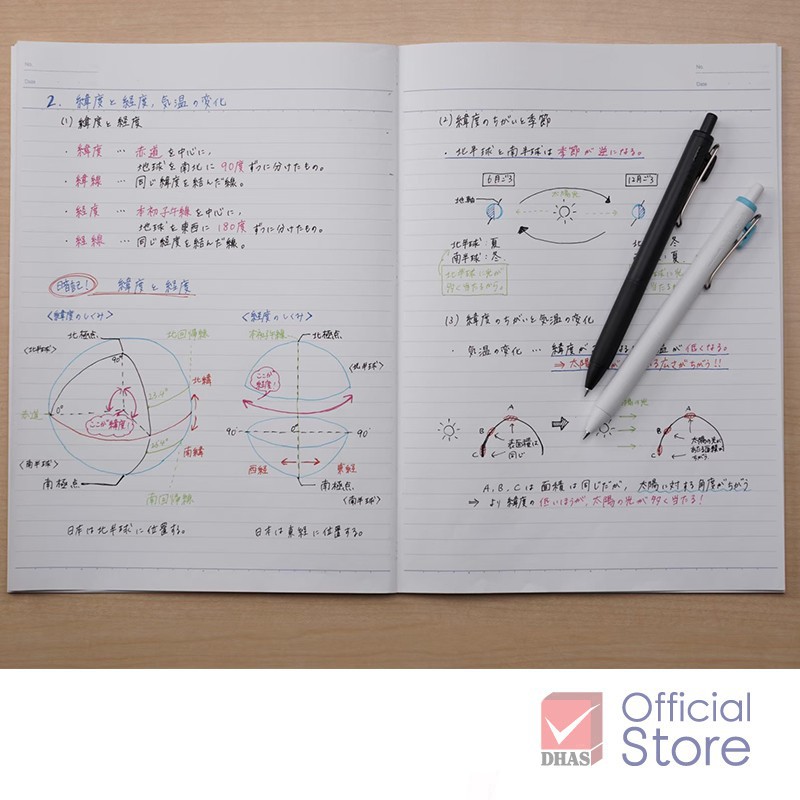 No.
Date
2. 緯度と経度、気温の変化
(1) 緯度と経度
・緯度 … 赤道を中心に、
地球を南北に90度ずつに分けたもの。
・緯線 … 同じ緯度を結んだ線。
・経度 … 本初子午線を中心に、
地球を東西に180度ずつに分けたもの。
・経線 … 同じ経度を結んだ線。
暗記! 緯度と経度
<緯度のしくみ>
北極点
<北半球>
90°
北回帰線
北緯
23.4°
赤道
0°
ここが緯度!
23.4°
南緯
<南半球>
南極点
南回帰線
日本は北半球に位置する。
<経度のしくみ>
本初子午線
北極点
<北半球>
ここが経度!
90°
0°
90°
西経
東経
南極点
<南半球>
日本は東経に位置する。
No.
Date
(2) 緯度のちがいと季節
・北半球と南半球は季節が逆になる。
6月ごろ
太陽光
12月ごろ
地軸
北半球:夏
南半球:冬
北半球に光が
多く当たるから。
冬
夏
(3) 緯度のちがいと気温の変化
・気温の変化 … 緯度が
低くなる。
⇒ 太陽
広さがちがう!!
の光
A
B
C
表面積は
同じ
A
B
C
太陽の光が
あたる面積が
ちがう
A, B, Cは面積は同じだが、太陽に対する角度がちがう
⇒ より緯度の低いほうが、太陽の光が多く当たる!
DHAS
Official
Store